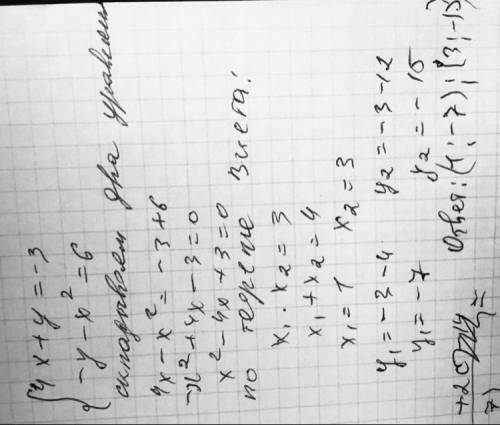 {4x+y=-3
{-y-x²=6
складываем два уравнения
4x-x²=-3+6
-x²+4x-3=0
x²-4x+3=0
по теореме Виета:
x₁·x₂=3
x₁+x₂=4
x₁=1 x₂=3
y₁=-3-4 y₂=-3-12
y₁=-7 y₂=-15
Ответ: (1;-7);(3;-15)
+20
7)